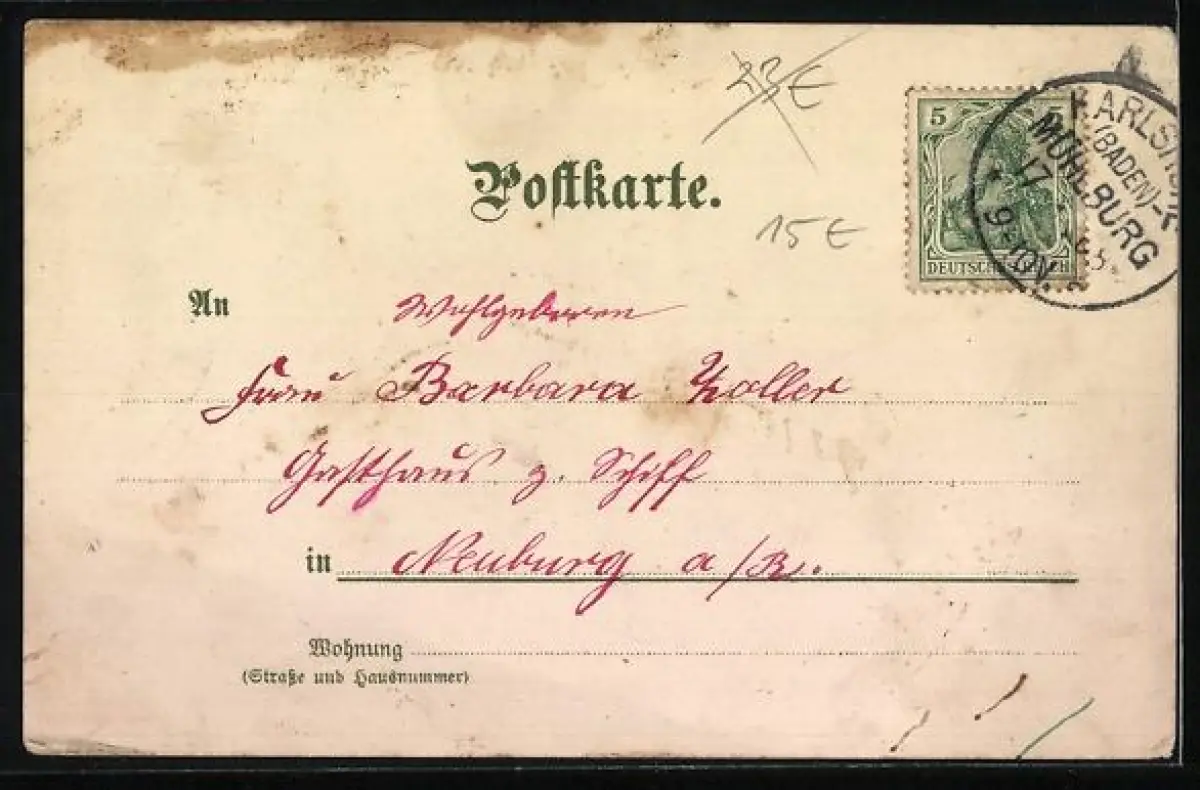 23€
Postkarte.
15€
5 5
DEUTSCHES REICH
KARLSRUHE
(BADEN)-
MÜHLBURG
17
9-10V.
An
Wohlgeboren
Frau Barbara Zoller
Gasthaus z. Schiff
in Neuburg a/R.
Wohnung
(Straße und Hausnummer)